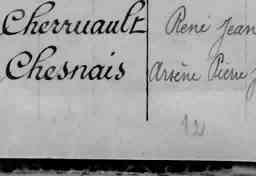 Cherruault René Jean
Chesnais Arsène Pierre J
12